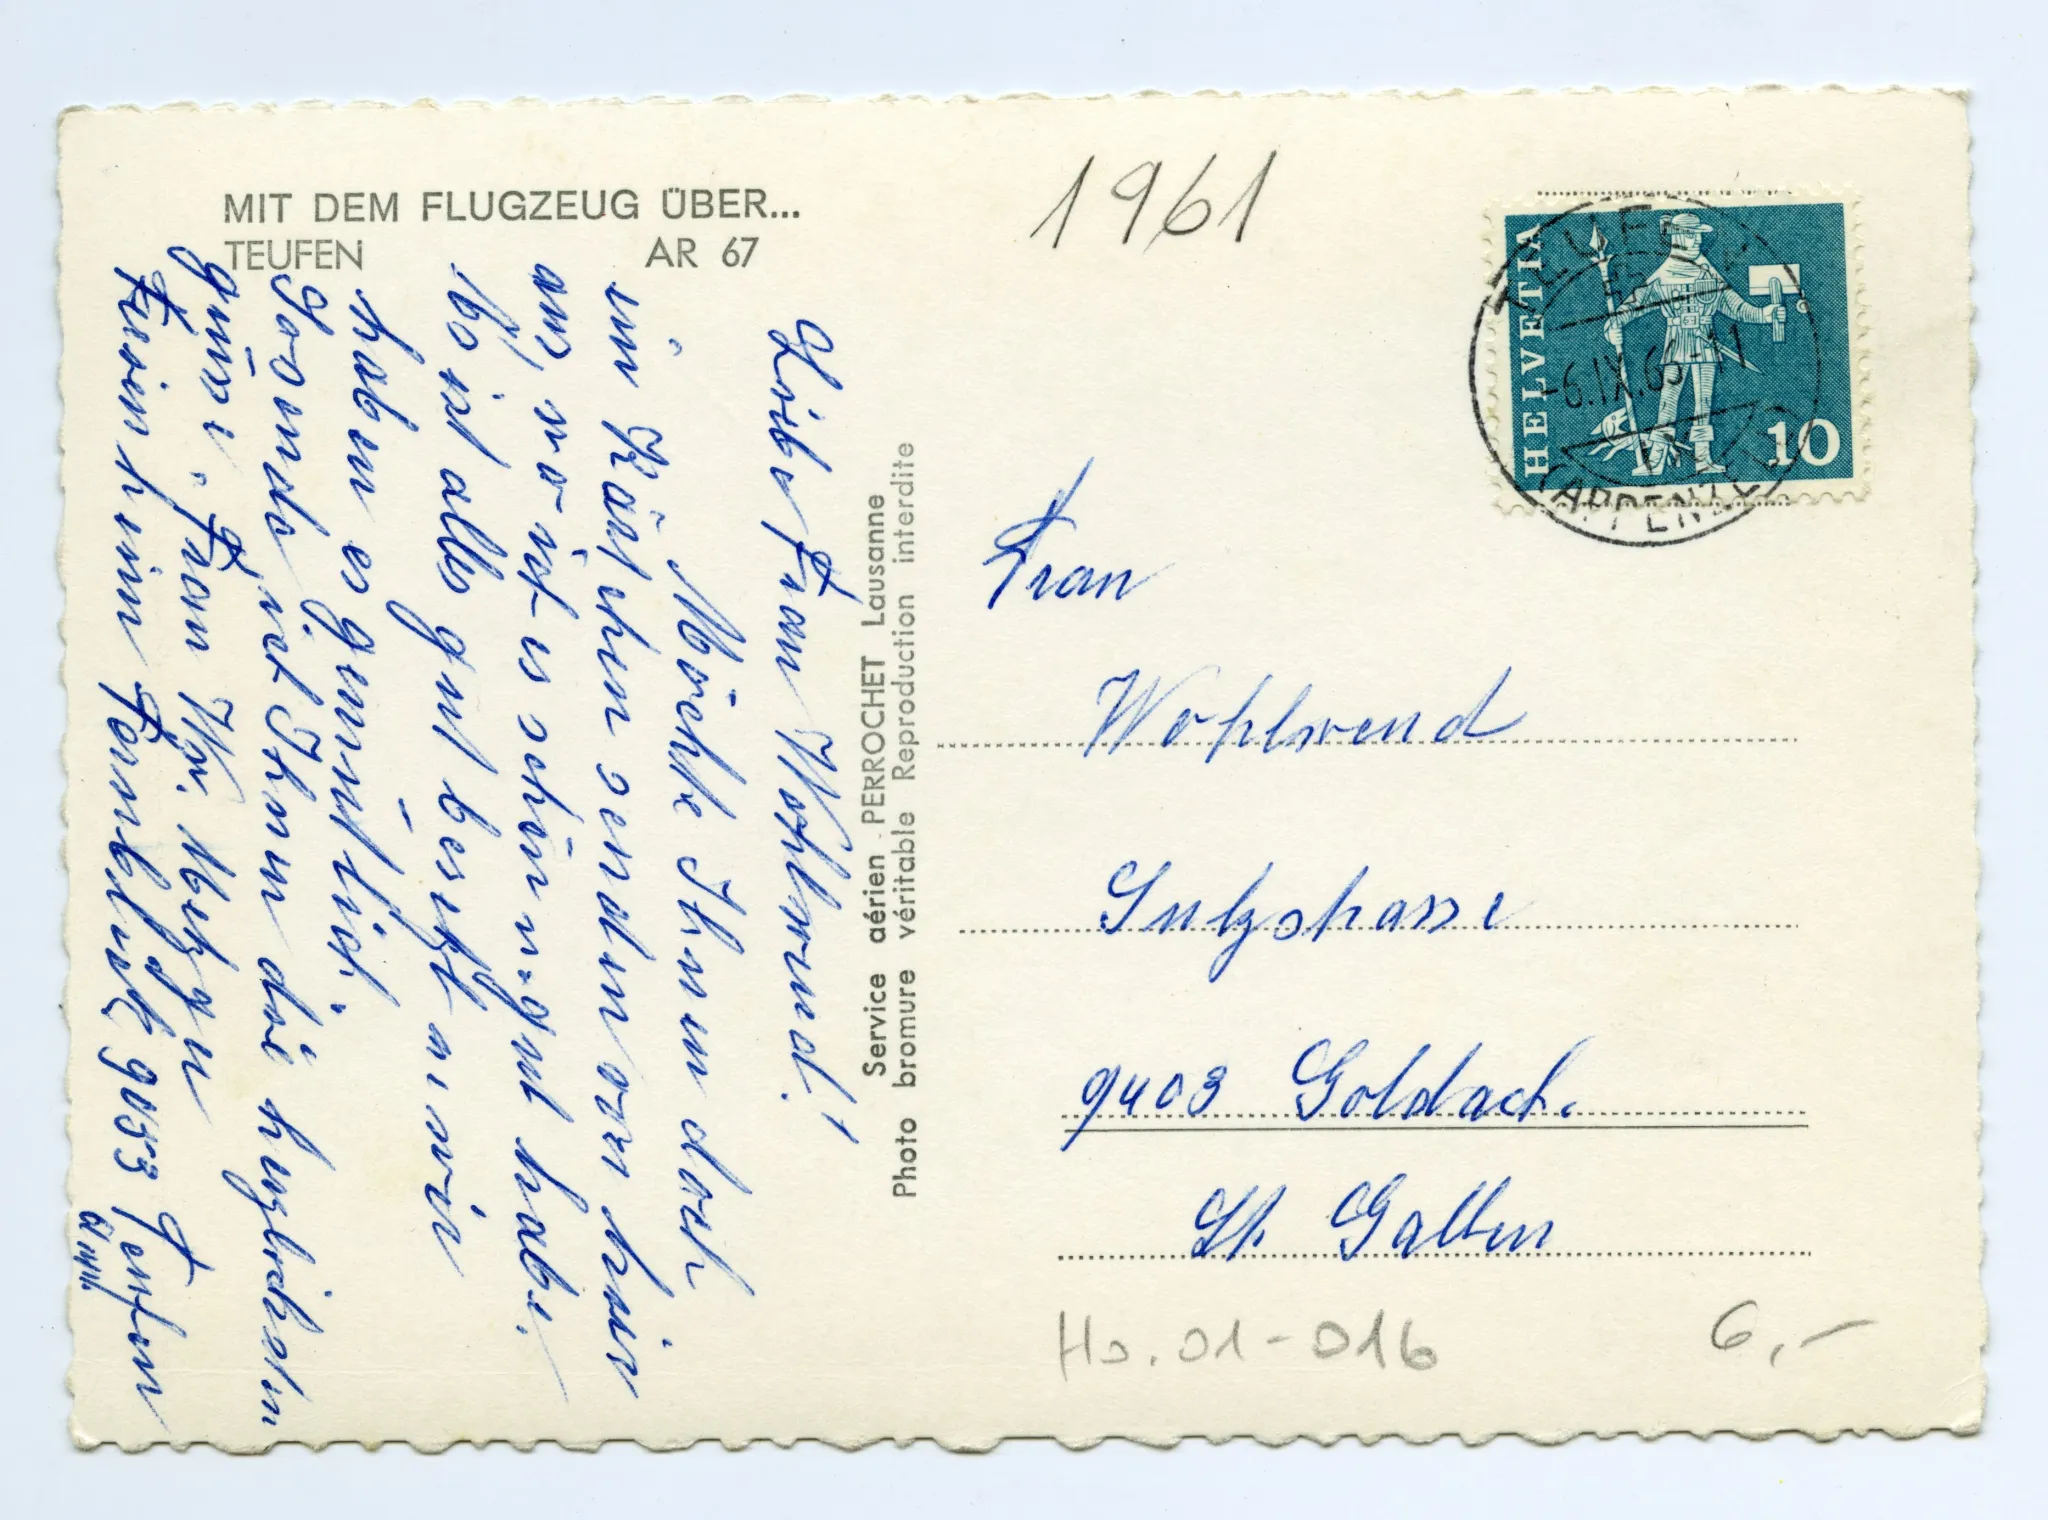 MIT DEM FLUGZEUG ÜBER...
TEUFEN AR 67
1961
HELVETIA
10
TEUFEN
-6.IX.65-11
(APPENZELL)
Liebe Frau Wohlwend!
Möchte Ihnen doch
ein Kärtchen senden von hier
aus, wo ich es schön u. gut habe.
Es ist alles gut besetzt u. wir
haben es gemütlich.
Gesende ist Ihnen die herzlichsten
Grüsse, Frau Ww.
Ferienheim Fernblick 9053 Teufen
Service aérien - PERROCHET Lausanne
Photo bromure véritable Reproduction interdite
Frau
Wohlwend
Sulzstrasse
9403 Goldach.
St. Gallen
Ho. 01-016
6,-